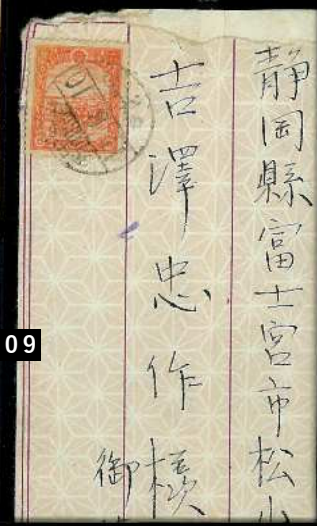 靜岡縣富士宮市松山
吉澤忠作様
御
09